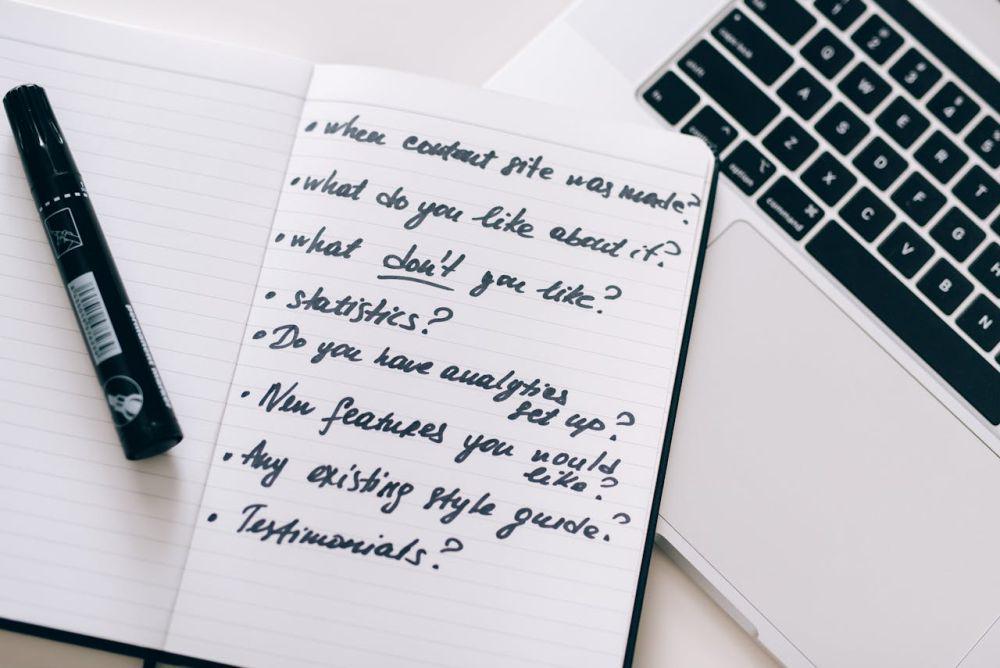 • when content site was made?
• what do you like about it?
• what don't you like?
• statistics?
• Do you have analytics
set up?
• New features you would
like?
• Any existing style guide?
• Testimonials?
caps lock
Q
@
2
#
3
$
4
shift
A
W
E
R
T
fn
Z
S
D
F
G
option
X
C
V
B
N
command
⌘